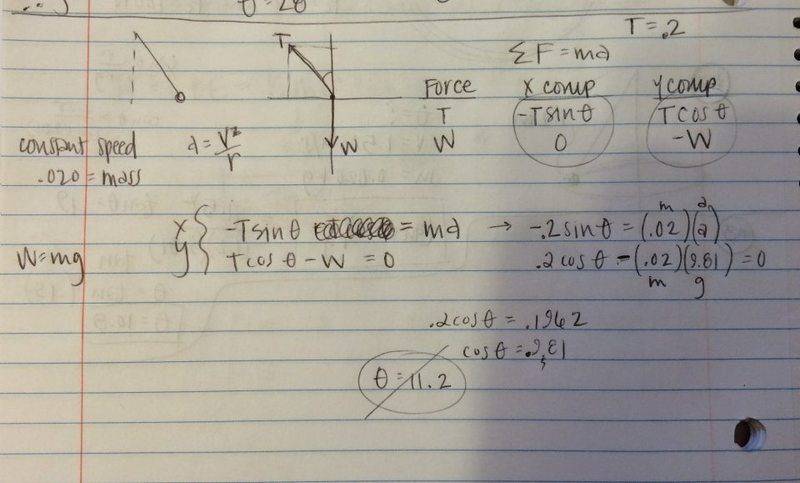 θ = 20
T = .2
ΣF = ma
Force X comp Y comp
T -T sin θ T cos θ
W 0 -W
T
W
constant speed a = V²/r
.020 = mass
W = mg
X { -T sin θ = ma → -.2 sin θ = (.02)(a)
m a
Y { T cos θ - W = 0 .2 cos θ - (.02)(9.81) = 0
m g
.2 cos θ = .1962
cos θ = .981
θ = 11.2